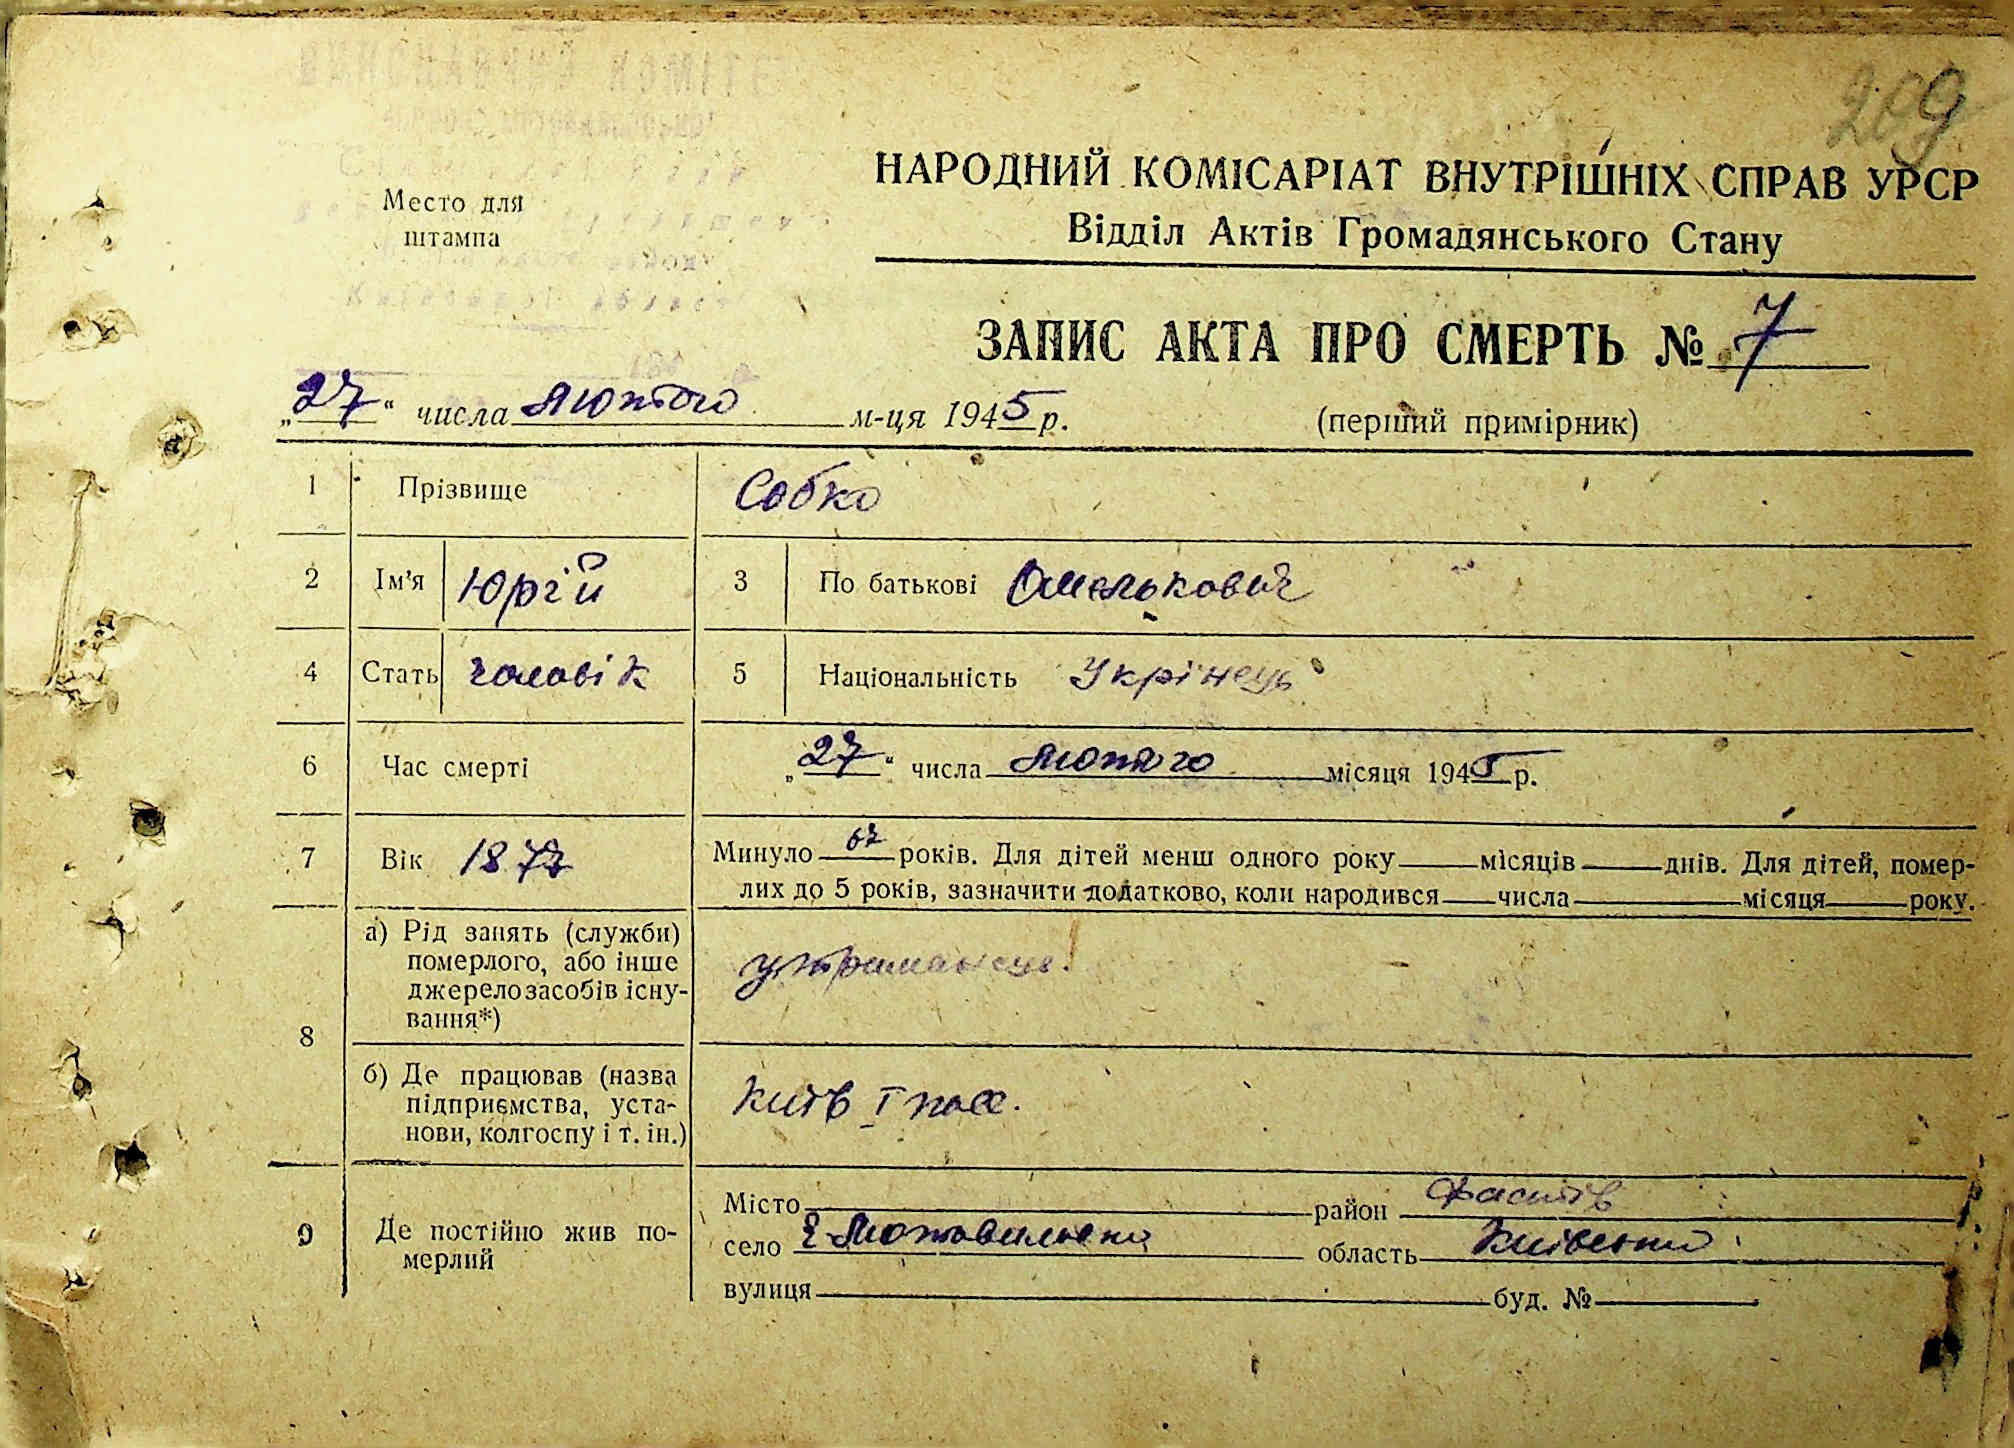 209
НАРОДНИЙ КОМІСАРІАТ ВНУТРІШНІХ СПРАВ УРСР
Відділ Актів Громадянського Стану
Место для
штампа
ЗАПИС АКТА ПРО СМЕРТЬ № 7
„27“ числа лютого м-ця 1945 р.
(перший примірник)
1 Прізвище Собко
2 Ім'я Юрій 3 По батькові Омелькович
4 Стать чоловік 5 Національність Укрінець
6 Час смерті „27“ числа лютого місяця 1945 р.
7 Вік 1877 Минуло 67 років. Для дітей менш одного року місяців днів. Для дітей, помер-
лих до 5 років, зазначити додатково, коли народився числа місяця року.
8 а) Рід занять (служби)
померлого, або інше
джерело засобів існу-
вання*)
утриманець.
б) Де працював (назва
підприємства, уста-
нови, колгоспу і т. ін.)
Київ І
9 Де постійно жив по-
мерлий
Місто район Фастів
село область Київська
вулиця буд. №